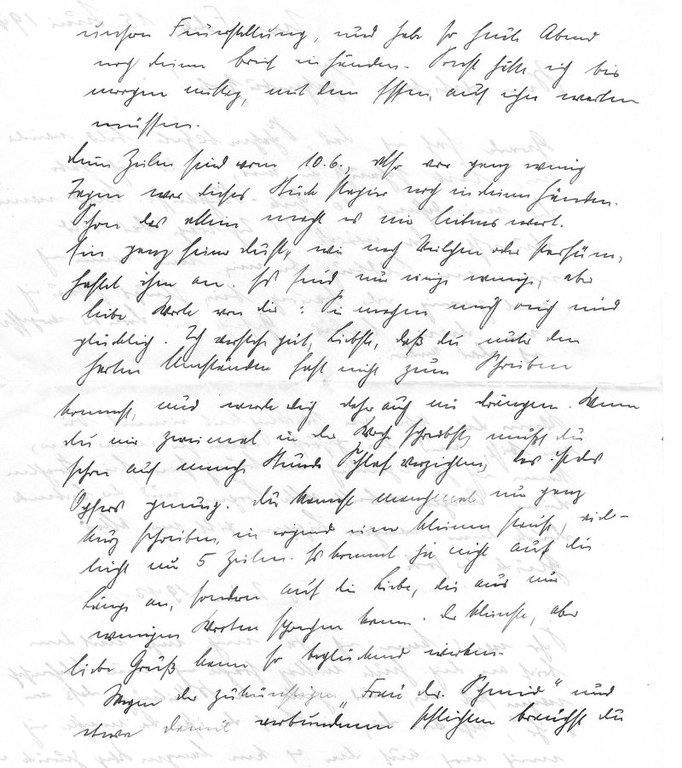 unsere Feuerstellung, und habe so heute Abend
noch deinen Brief in Händen. Sonst hätte ich bis
morgen mittag, mit dem Essen, auf ihn warten
müssen.
Deine Zeilen sind vom 10.6., also vor ganz wenig
Tagen war dieses Stück Papier noch in deinen Händen.
Schon das allein macht es mir liebenswert.
Ein ganz feiner Duft, wie nach Veilchen oder Parfüm,
haftet ihm an. Es sind nur einige wenige, aber
liebe Worte von dir: Sie machen mich reich und
glücklich. Ich verstehe gut, Liebste, daß du unter den
harten Umständen fast nicht zum Schreiben
kommst, und werde dich daher auch nie drängen. Wenn
du mir zweimal in der Woche schreibst, mußt du
schon auf manche Stunde Schlaf verzichten, das ist des
Opfers genung. Du kannst manchmal nur ganz
kurz schreiben, in irgend einer kleinen Pause, viel-
leicht nur 5 Zeilen. Es kommt ja nicht auf die
Länge an, sondern auf die Liebe, die aus nur
wenigen Worten sprechen kann. Der kleinste, aber
liebe Gruß kann so beglückend wirken.
Wegen der zukünftigen "Frau Dr. Schmid" und
etwa damit verbundenen Pflichten brauchst du